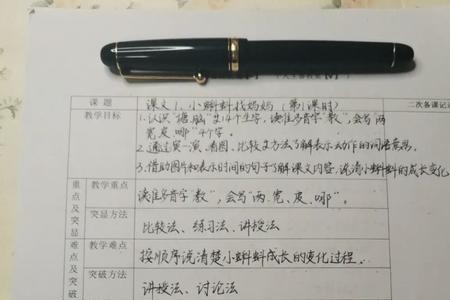 课题 课文1、小蝌蚪找妈妈（第1课时） 二次备课记
教学目标 1、认识“塘、脑”等14个生字，读准多音字“教”，会写“两
宽皮哪”4个字。
2、通过演一演、看图、比较等方法了解表示动作的词语意思。
3、借助图片和表示时间的句子了解课文内容，说清小蝌蚪的成长变化
重点及突显 教学重点 读准多音字“教”，会写“两、宽、皮、哪”。
突显方法 比较法、练习法、讲授法
难点及突破 教学难点 按顺序说清楚小蝌蚪成长的变化过程。
突破方法 讲授法、讨论法